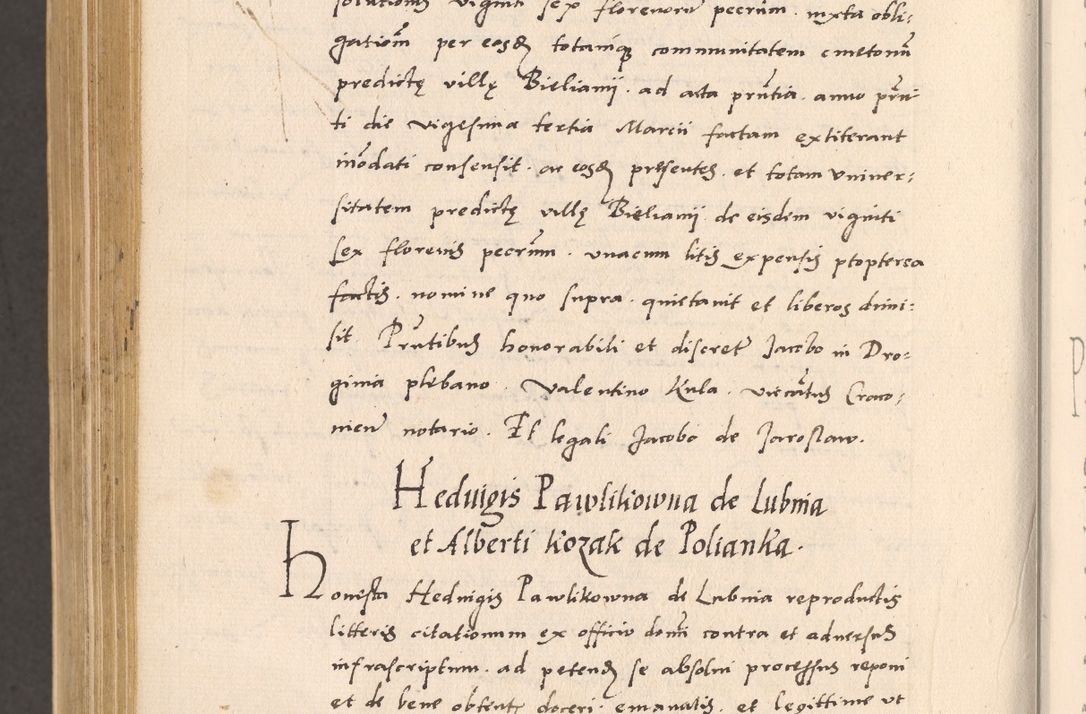 solutionis viginti sex florenorum pecrum. iuxta obli:
gationem per eosdem totamque communitatem cmetonum
predictę villę Bielianij. ad acta prntia. anno prn
ti die vigesima tertia Marcii factam extiterant
inodati consensit. ac eosdem presentes. et totam vniuer:
sitatem predictę villę Bielianij de eisdem viginti
sex florenis pecrum. vnacum litis expensis ptopterea
factis. nomine quo supra. quietauit et liberos dimi:
sit. Prntibus honorabili et discretis Jacobo in Dro:
ginia plebano. Valentino Kula. vicatus Craco:
nien notario. Et legali Jacobo de Jaroslaw.
Heduigis Pawlikowna de Lubnia
et Alberti Kozak de Polianka.
Honesta Heduigis Pawlikowna de Lubnia reproductis
litteris citationum ex officio domi contra et aduersus
infrascriptum. ad petendum se absolui processus reponi
et de bene obtent doceri. emanatis. et legittime vt